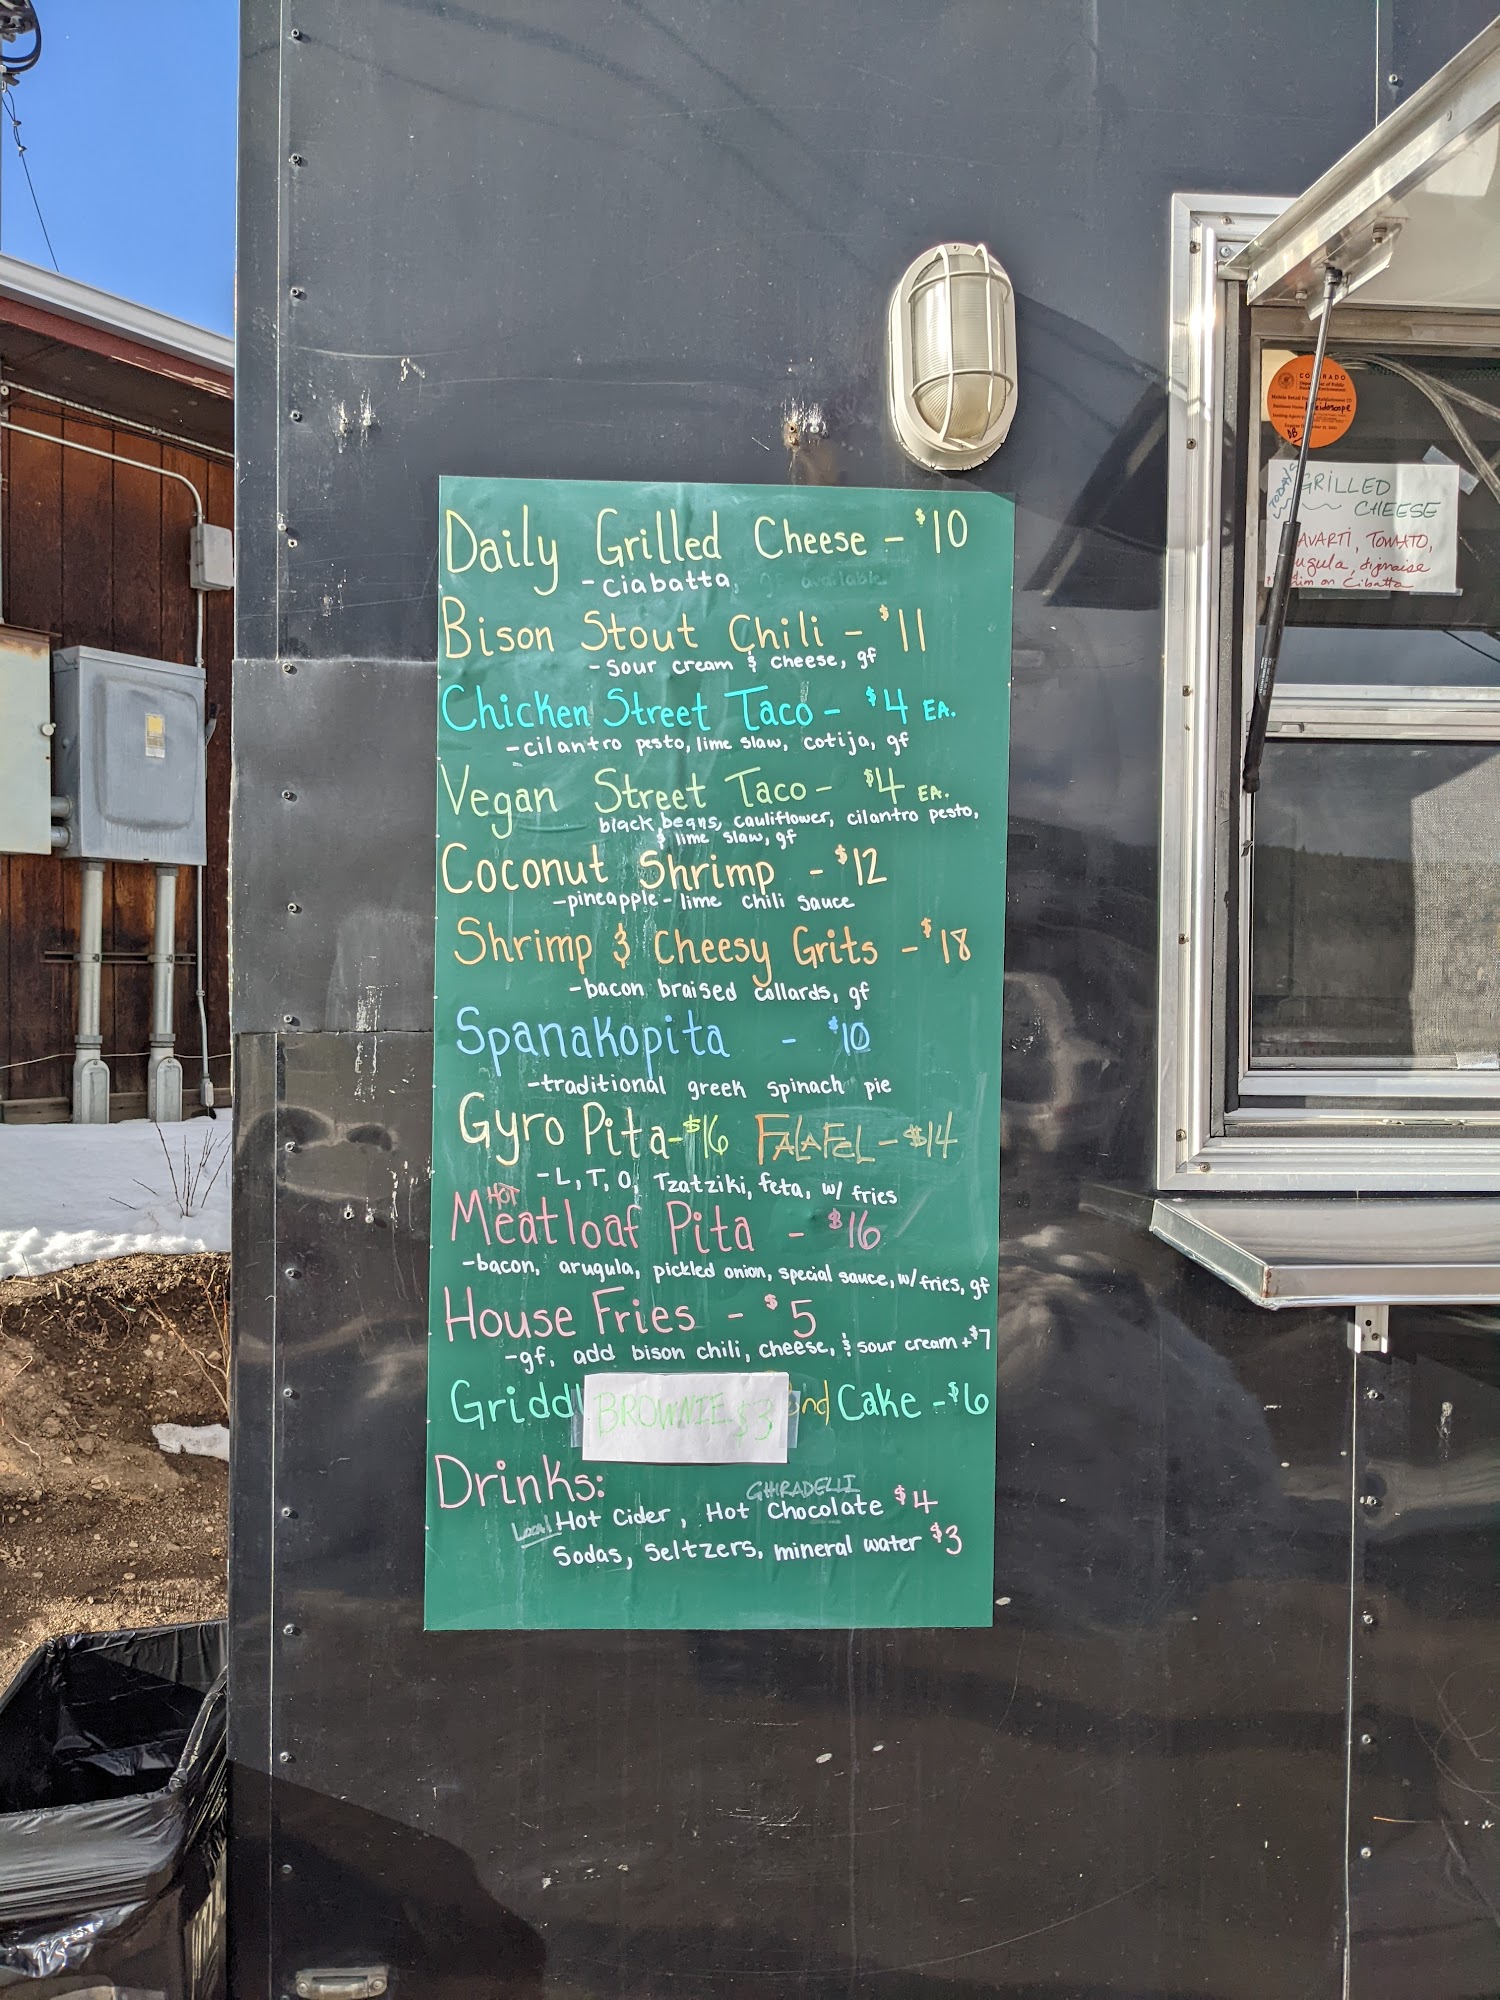 Daily Grilled Cheese - $10
- ciabatta, available
Bison Stout Chili - $11
- sour cream & cheese, gf
Chicken Street Taco - $4 EA.
- cilantro pesto, lime slaw, cotija, gf
Vegan Street Taco - $4 EA.
black beans, cauliflower, cilantro pesto,
& lime slaw, gf
Coconut Shrimp - $12
- pineapple - lime chili sauce
Shrimp & Cheesy Grits - $18
- bacon braised collards, gf
Spanakopita - $10
- traditional greek spinach pie
Gyro Pita - $16 FALAFEL - $14
- L, T, O, Tzatziki, feta, w/ fries
HOT
Meatloaf Pita - $16
- bacon, arugula, pickled onion, special sauce, w/ fries, gf
House Fries - $5
- gf, add bison chili, cheese, & sour cream + $7
Griddl BROWNIE $3 nd Cake - $6
Drinks:
GHIRADELLI
Local Hot Cider, Hot Chocolate $4
Sodas, Seltzers, mineral water $3
COLORADO
Department of Public
TODAY'S
GRILLED
CHEESE
AVARTI, TOMATO,
ugula, dijonaise
on Cibatta